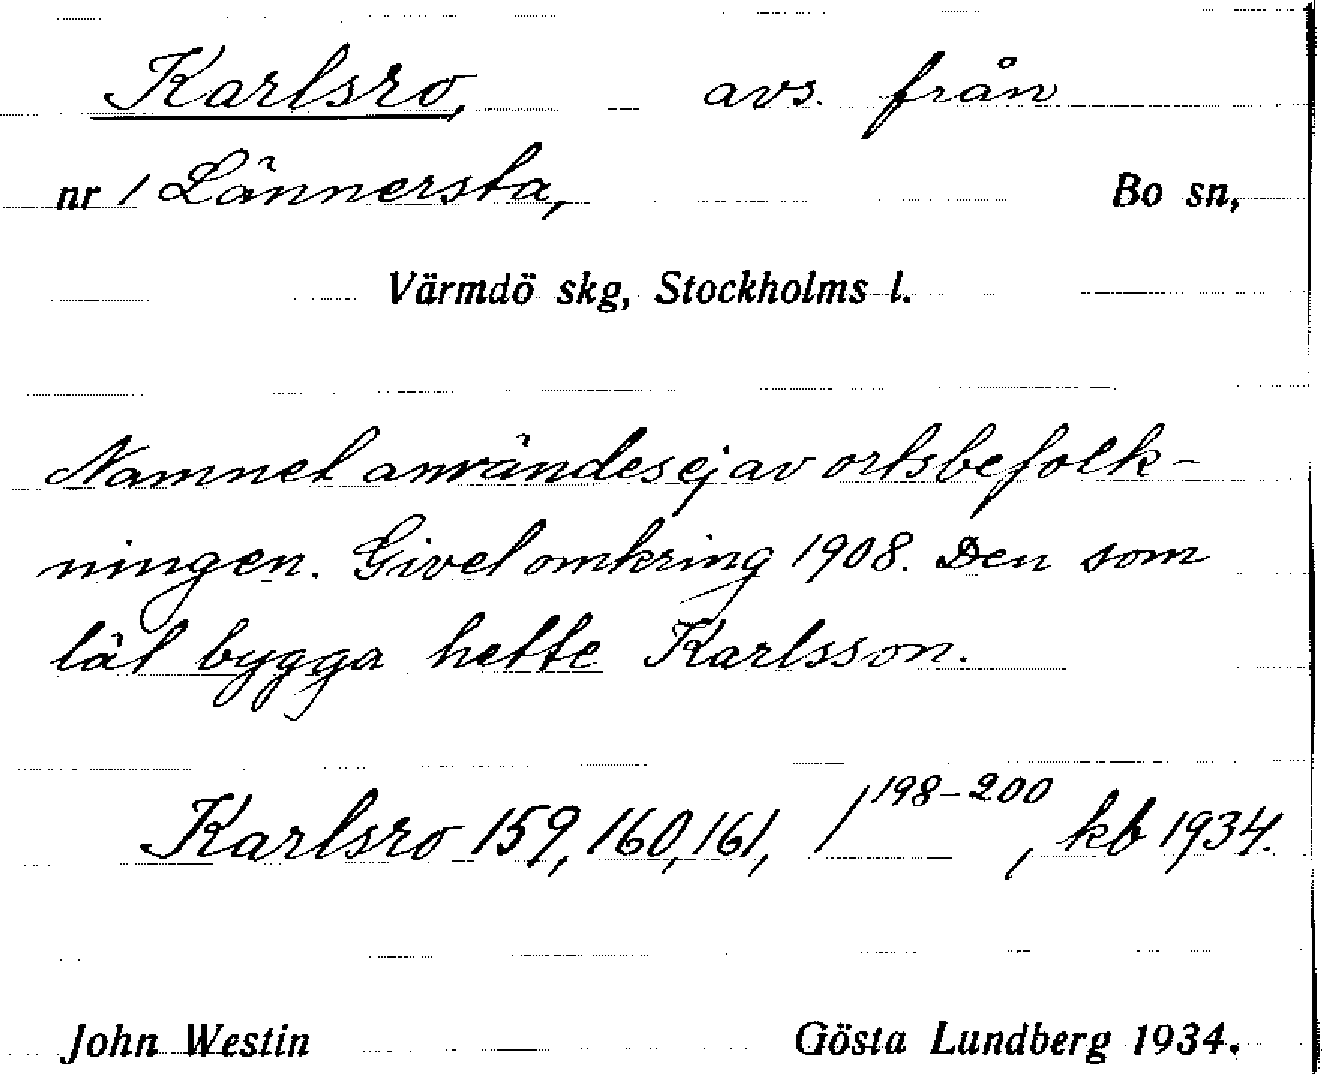 Karlsro, avs. från
nr 1 Lännersta, Bo sn,
Värmdö skg, Stockholms l.
Namnet användes ej av ortsbefolk-
ningen. Givet omkring 1908. Den som
lät bygga hette Karlsson.
Karlsro 159, 160, 161, 1 198-200, kb 1934.
John Westin Gösta Lundberg 1934.